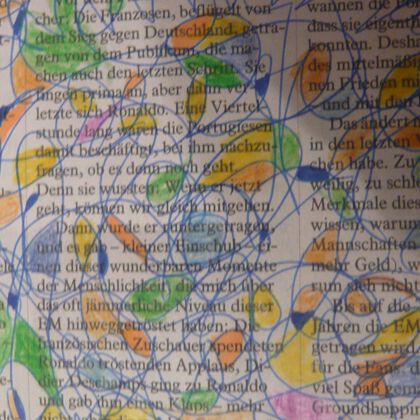 cher: Die Franzosen, beflügelt von
dem Sieg gegen Deutschland, getra-
gen von dem Publikum, die ma-
chen auch den letzten Schritt. Sie
fingen prima an, aber dann ver-
letzte sich Ronaldo. Eine Viertel-
stunde lang waren die Portugiesen
damit beschäftigt, bei ihm nachzu-
fragen, ob es denn noch geht.
Denn sie wussten: Wenn er jetzt
geht, können wir gleich mitgehen.
Dann wurde er runtergetragen,
und es gab – kleiner Einschub – ei-
nen dieser wunderbaren Momente
der Menschlichkeit, die mich über
das oft jämmerliche Niveau dieser
EM hinweggetröstet haben: Die
französischen Zuschauer spendeten
Ronaldo tröstenden Applaus, Di-
dier Deschamps ging zu Ronaldo
und gab ihm einen Klaps – mehr
wannen die
dass sie eigent
konnten. Desha
des mittelmäßig
nen Frieden mi
und mit de
Das ändert n
in den letzten
chen habe. Zu
weilig, zu schl
Merkmale dies
wissen, warum
Mannschaften
mehr Geld), w
rum sich nicht
Bis auf die
Jahren die EM
getragen wird
für die Fans, d
viel Spaß gem
Groundhopp